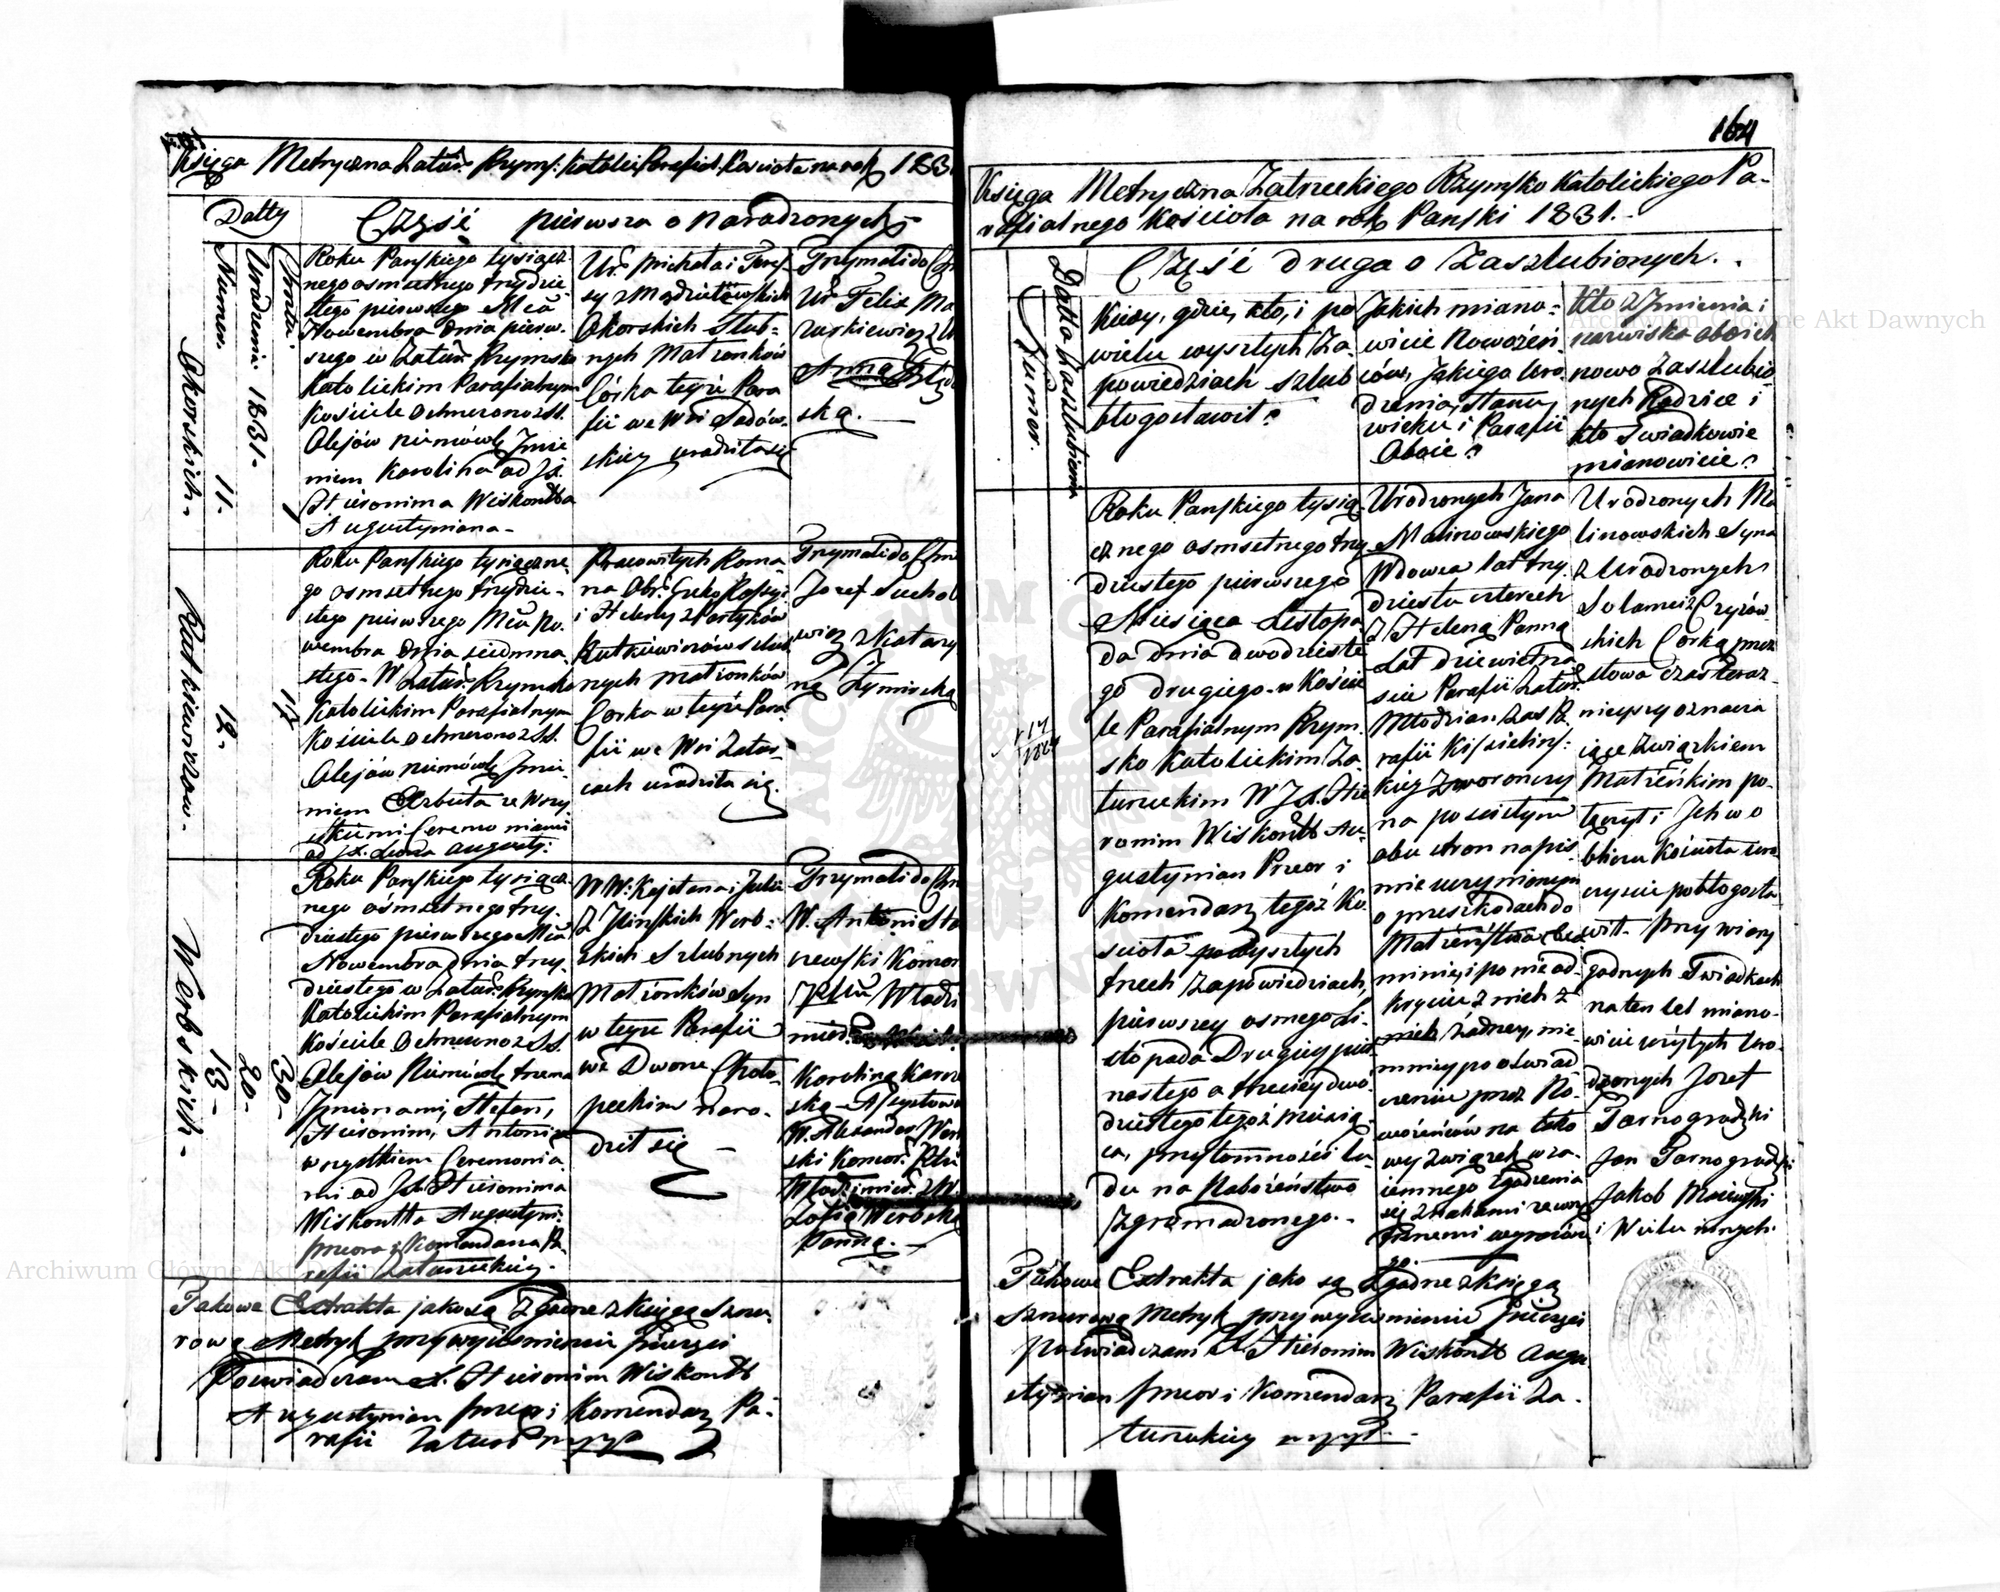 Księga Metryczna Zatur: Rzyms: Katolic: Parafial: Kościoła na rok 183
Datty
Część pierwsza o narodzonych
Numer.
Urodzenia 1831.
Chrztu.
Okorskich.
11.
1
Roku Pańskiego tysiącz-
nego osmsetnego trzydzie-
stego pierwszego Mca
Nowembra dnia pierw-
szego w Zatur: Rzymsko
Katolickim Parafialnym
Kościele Ochrzczono z SS.
Olejów niemówlę Imie-
niem Karolina od JX.
Hieronima Wiskontta
Augustyniana -
Ur: Michała i Teres-
sy z
Okorskich Slub-
nych Małżonków
Córka teyże Para
fii we Wsi Sadow-
skiey urodziła się
Trzymali do Ch
Ur: Felix Ma
zurkiewicz z U
Anną
ską.
Rutkiewiczow.
12.
17
Roku Pańskiego tysiączne-
go osmsetnego trzydzie-
stego pierwszego Mca No-
wembra dnia siedmna
stego - W Zatur: Rzymsko
Katolickim Parafialnym
Kościele Ochrzczono z SS.
Olejów niemówlę Imie-
niem Elzbieta ze Wszy
stkiemi Ceremoniami
od JX. Leona Augusty:
Pracowitych Roma-
na Obr: Greko Rossyi:
i Heleny z Portyków
Rutkiewiczów slub
nych Małżonków
Corka w teyże Para
fii we Wsi Zatur-
cach urodziła się
Trzymali do Chrz
Jozef Suchod
wicz z Katarzy
ną Zymirską
Werbskich -
13 -
20 -
30 -
Roku Pańskiego tysiącz-
nego ośmsetnego trzy-
dziestego pierwszego Mca
Nowembra dnia trzy-
dziestego w Zatur: Rzymsko
Katolickim Parafialnym
Kościele Ochrzczono z SS.
Olejów Niemówlę trzema
Imionami, Stefan,
Hieronim, Antoni
wszystkiem Ceremonia
mi od JX. Hieronima
Wiskontta Augustyni:
przeora i Komendarza Pa-
rafii Zaturzeckiey.
WW: Kajetana i Julii
z Ilinskich Werb-
skich Szlubnych
Małżonków Syn
w teyże Parafii
we Dworze Choło-
peckim naro-
dził się -
Trzymali do Chrz
W. Antoni Sta
szewski Komor
Pttu Włodzi
mier:
Karoliną Karsze
ską - Assystowa
W. Alexander Wer
ski Komor: Pttu
Włodzimier: z W
Zofią Werbską
Panną. -
Takowe Extrakta jako są Zgodne z księgą Sznu-
rową Metryk przy wyciśnieniu pieczęci
Poświadczam X. Hieronim Wiskontt
Augustynian przeor i Komendarz Pa-
rafii Zaturc mpp
164
Księga Metryczna Zaturzeckiego Rzymsko Katolickiego Pa-
rafialnego Kościoła na rok Pański 1831.
Numer.
Datta Zaszlubienia
Część druga o Zaszlubionych.
Kiedy, gdzie, kto, i po
wielu wyszłych Za-
powiedziach szlub
błogosławił?
Jakich miano-
wicie Nowożeń-
ców, Jakiego Uro-
dzenia, stanu,
wieku i Parafii
Oboie?
Kto z Imienia i
nazwiska oboich
nowo Zaszlubio-
nych Rodzice i
kto Swiadkowie
mianowicie?
Roku Pańskiego tysią-
cznego osmsetnego trzy
dziestego pierwszego
Miesiąca Listopa-
da dnia dwodzieste
go drugiego w Koście
le Parafialnym Rzym-
sko Katolickim Za-
turzeckim W JX. Hie
ronim Wiskontt Au-
gustynian Przeor i
Komendarz tegoż Ko-
scioła po wyszłych
trzech Zapowiedziach,
pierwszey osmego Li-
stopada Drugiey piet
nastego a trzeciey dwo
dziestego tegoż miesią
ca, przytomności lu-
du na Nabożeństwo
Zgromadzonego. -
Urodzonych Jana
Malinowskiego
Wdowca lat trzy-
dziestu czterech
z Heleną Panną
Lat dziewietna
scie Parafii Zatur:
Młodzian Zas Pa
rafii Kisielins:
kiey
na poscistym
obu stron napiś-
mie uczynionym
o przeszkodach do
Małżeństwa
i po nieod-
kryciu z nich z
nich żadney, nie
mniey po oświad
czeniu przez No-
wożeńców na tako
wy Związek wza-
iemnego zgodzenia
się znakami zewnę
trznemi wyrażone
go.
Urodzonych Ma
linowskich Syna
z Urodzonych
Salomei z
skich Corką przez
słowa czas teraz-
nieyszy oznacza
iące Związkiem
Małżeńskim po-
łączył i Ich w o
bliczu Kościoła uro
czyscie pobłogosła
wił - przy wiary
godnych Swiadkach
na ten cel miano-
wicie użytych Uro-
dzonych Jozef
Tarnogradzki
Jan Tarnogradzki
Jakob
i Wielu innych.
Takowe Extrakta jako są Zgodne z księgą
Sznurową Metryk przy wyciśnieniu Pieczęci
poświadczam X Hieronim Wiskontt Augu
stynian przeor i Komendarz Parafii Za-
turzeckiey mpp.
Archiwum Główne Akt Dawnych
Archiwum Główne Akt Dawnych
ARCHIWUM GŁÓWNE AKT DAWNYCH